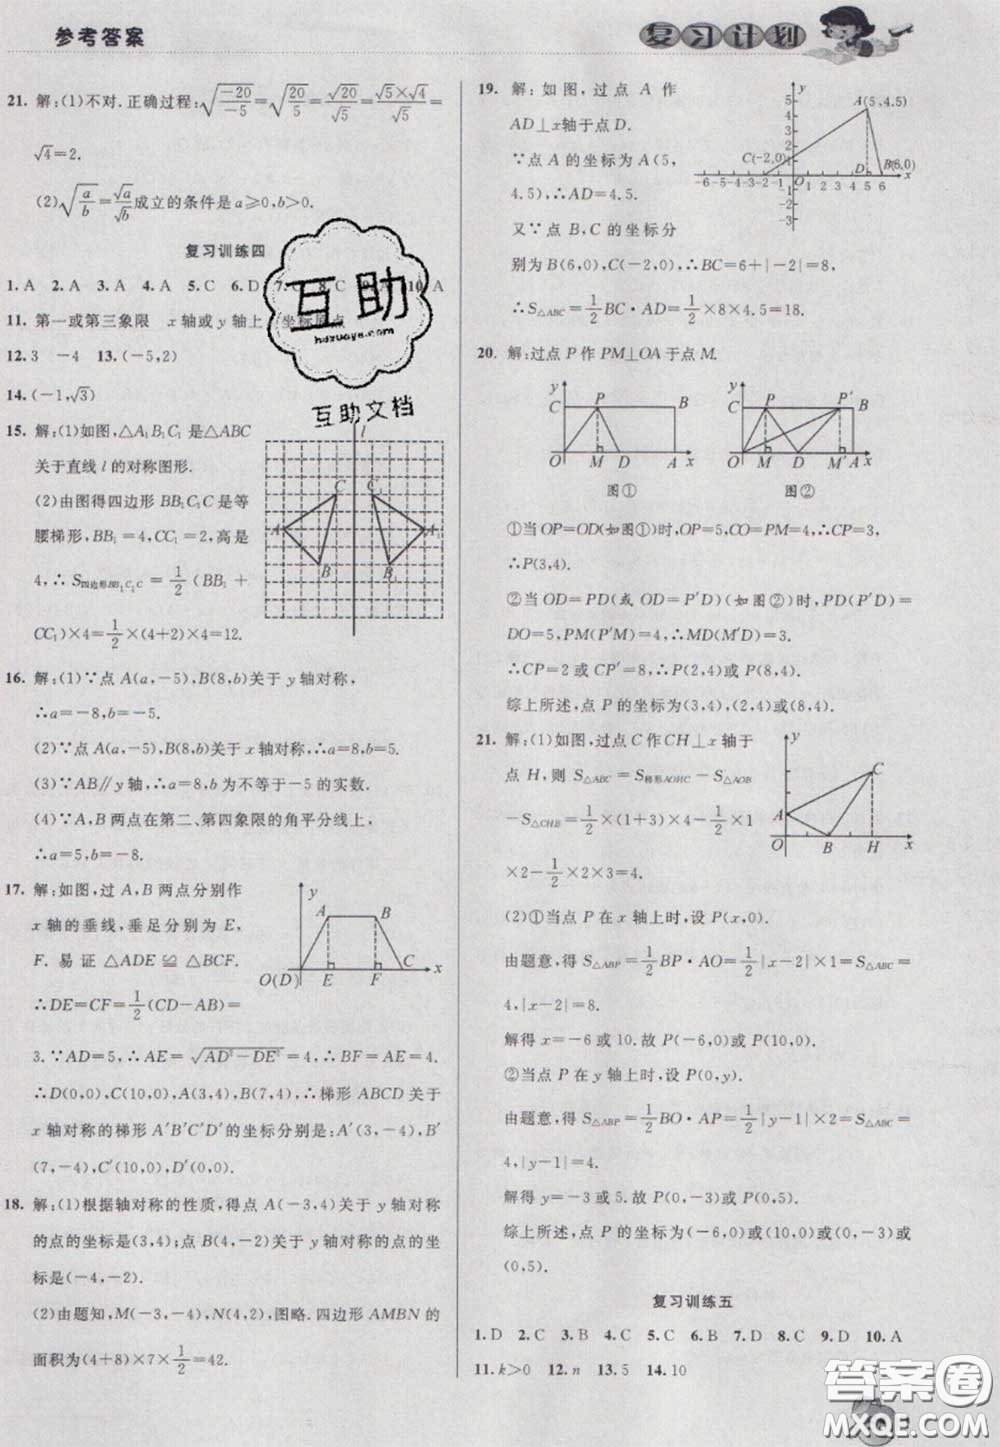 参考答案
复习计划
21. 解:(1)不对. 正确过程:√(-20/-5)=√(20/5)=√20/√5=√(5×4)/√5=
√4=2.
(2)√(a/b)=√a/√b成立的条件是a≥0,b>0.
复习训练四
1. A 2. A 3. A 4. A 5. C 6. D 7. C 8. C
11. 第一或第三象限 x轴或y轴上
12. 3 -4 13. (-5,2)
14. (-1,√3)
15. 解:(1)如图,△A₁B₁C₁是△ABC
关于直线l的对称图形.
(2)由图得四边形BB₁C₁C是等
腰梯形,BB₁=4,CC₁=2,高是
4,∴S四边形BB₁C₁C=1/2(BB₁+
CC₁)×4=1/2×(4+2)×4=12.
l
A B C C₁ B₁ A₁
16. 解:(1)∵点A(a,-5),B(8,b)关于y轴对称,
∴a=-8,b=-5.
(2)∵点A(a,-5),B(8,b)关于x轴对称,∴a=8,b=5.
(3)∵AB∥y轴,∴a=8,b为不等于-5的实数.
(4)∵A,B两点在第二、第四象限的角平分线上,
∴a=5,b=-8.
17. 解:如图,过A,B两点分别作
x轴的垂线,垂足分别为E,
F. 易证△ADE≌△BCF.
∴DE=CF=1/2(CD-AB)=
y A B O(D) E F C x
3. ∵AD=5,∴AE=√(AD²-DE²)=4,∴BF=AE=4.
∴D(0,0),C(10,0),A(3,4),B(7,4),∴梯形ABCD关于
x轴对称的梯形A′B′C′D′的坐标分别是:A′(3,-4),B′
(7,-4),C′(10,0),D′(0,0).
18. 解:(1)根据轴对称的性质,得点A(-3,4)关于y轴对称
的点的坐标是(3,4);点B(4,-2)关于y轴对称的点的坐
标是(-4,-2).
(2)由题知,M(-3,-4),N(4,2),图略. 四边形AMBN的
面积为(4+8)×7×1/2=42.
19. 解:如图,过点A作
AD⊥x轴于点D.
∵点A的坐标为A(5,
4.5),∴AD=4.5.
又∵点B,C的坐标分
别为B(6,0),C(-2,0),∴BC=6+|-2|=8,
∴S△ABC=1/2BC·AD=1/2×8×4.5=18.
y A(5,4.5) C(-2,0) D B(6,0) x O
5 4 3 2 1 -1 -2 -3
-6 -5 -4 -3 -2 -1 1 2 3 4 5 6
20. 解:过点P作PM⊥OA于点M.
y C P B O M D A x
y C P P′ B O M D M′ A x
图① 图②
①当OP=OD(如图①)时,OP=5,CO=PM=4,∴CP=3,
∴P(3,4).
②当OD=PD(或OD=P′D)(如图②)时,PD(P′D)=
DO=5,PM(P′M)=4,∴MD(M′D)=3.
∴CP=2或CP′=8,∴P(2,4)或P(8,4).
综上所述,点P的坐标为(3,4),(2,4)或(8,4).
21. 解:(1)如图,过点C作CH⊥x轴于
点H,则S△ABC=S梯形AOHC-S△AOB
-S△CHB=1/2×(1+3)×4-1/2×1
×2-1/2×2×3=4.
y C A O B H x
(2)①当点P在x轴上时,设P(x,0).
由题意,得S△ABP=1/2BP·AO=1/2|x-2|×1=S△ABC=
4,|x-2|=8.
解得x=-6或10. 故P(-6,0)或P(10,0).
②当点P在y轴上时,设P(0,y).
由题意,得S△ABP=1/2BO·AP=1/2|y-1|×2=S△ABC=
4,|y-1|=4.
解得y=-3或5. 故P(0,-3)或P(0,5).
综上所述,点P的坐标为(-6,0)或(10,0)或(0,-3)或
(0,5).
复习训练五
1. D 2. C 3. B 4. C 5. C 6. B 7. D 8. C 9. D 10. A
11. k>0 12. n 13. 5 14. 10
互助
huzuoye.com
互助文档
答案圈
MXQE.COM